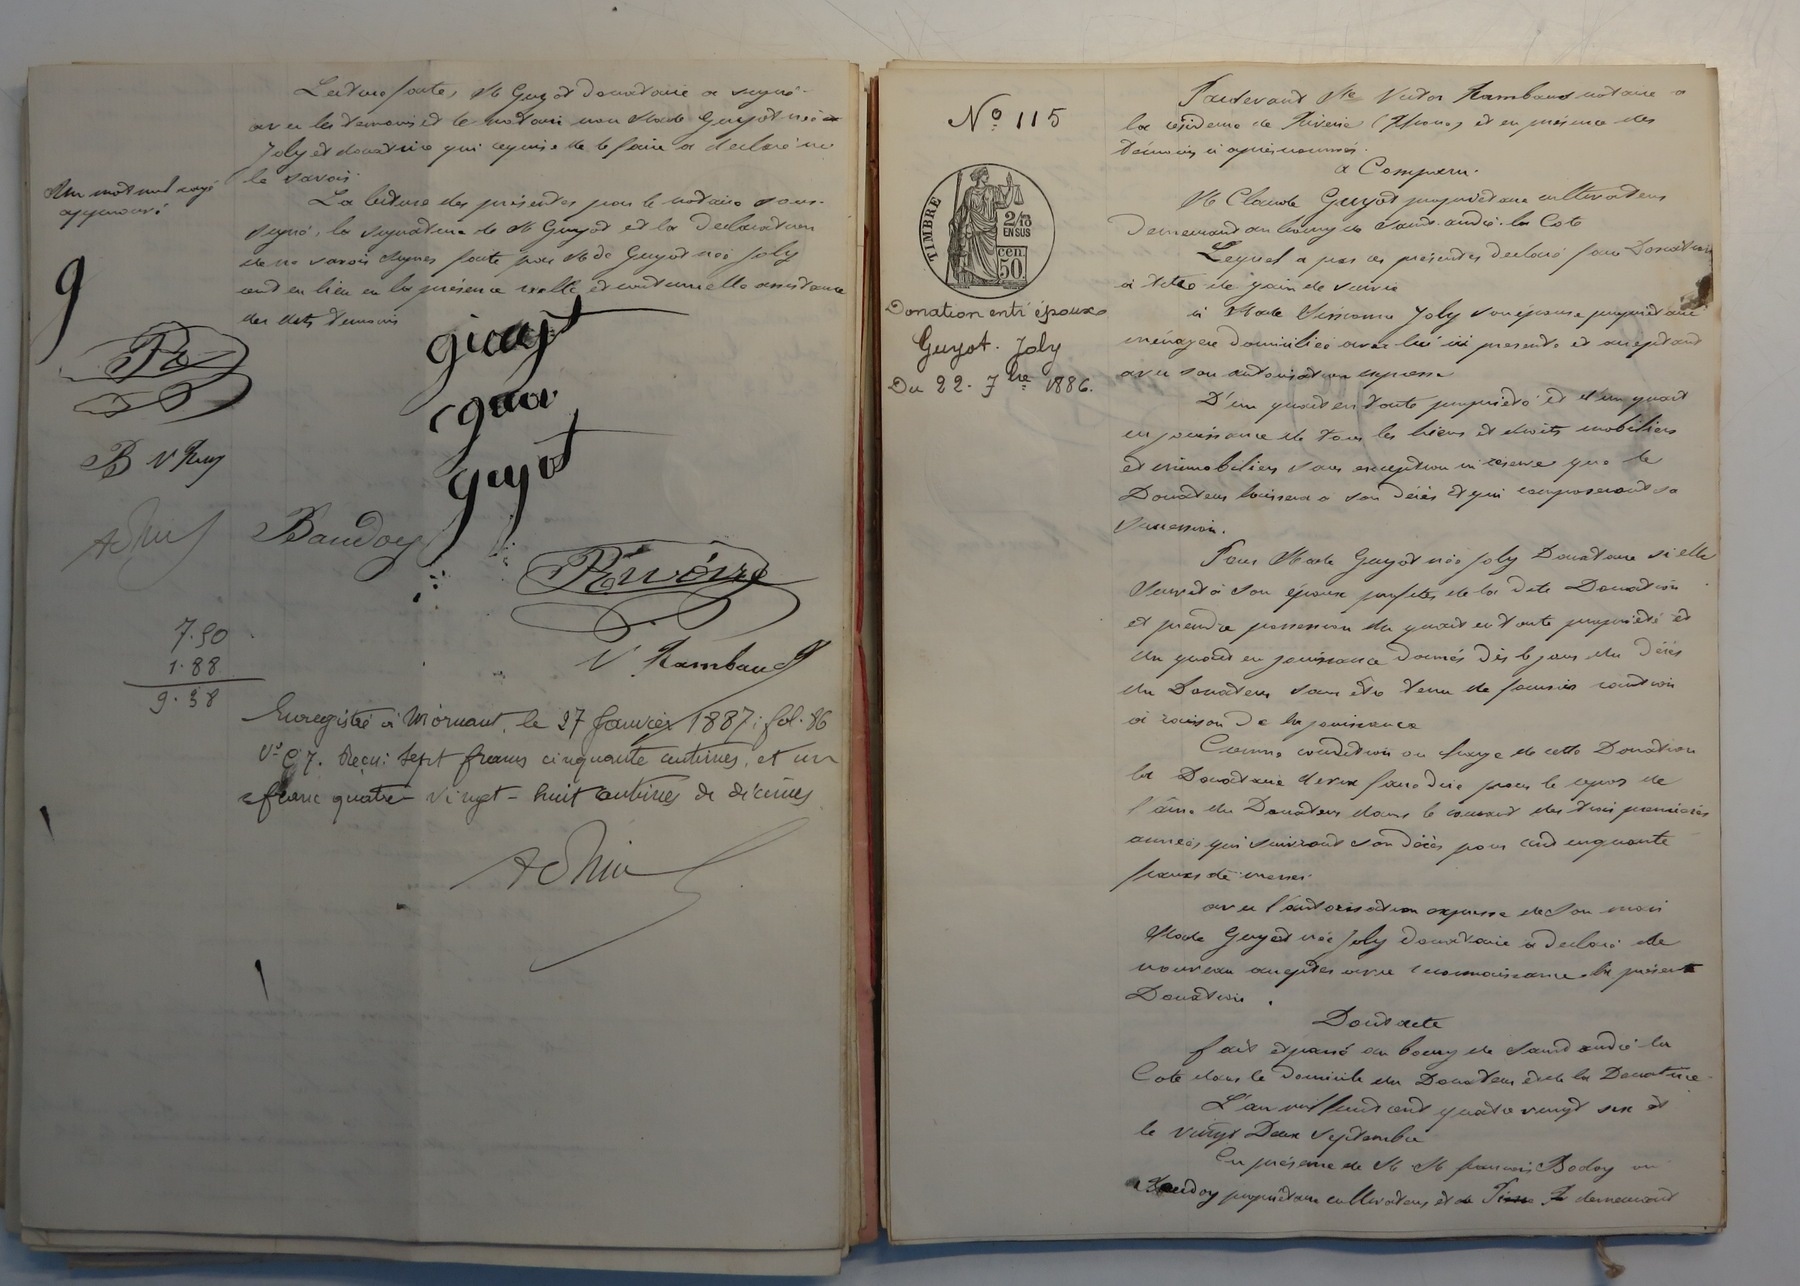 Lecture faite, M Guyot donataire a signé
avec les témoins et le notaire non Made Guyot née
Joly et donatrice qui requise de le faire a déclaré ne
le savoir.
La lecture des présentes par le notaire sous-
signé, la signature de M Guyot et la déclaration
de ne savoir signer faite par Made Guyot née Joly
ont eu lieu en la présence réelle et
des dits témoins
Un mot nul rayé
approuvé
g
guyot
guyot
B V Ram
Baudoy
Rivoire
V Rambaud
7.50
1.88
9.38
Enregistré à Mornant, le 27 Janvier 1887, fol. 86
V° C 7. Reçu: sept francs cinquante centimes, et un
franc quatre-vingt-huit centimes de décimes
N° 115
TIMBRE
2/10
EN SUS
50 cen
Donation entre époux
Guyot. Joly
Du 22. 7bre 1886.
Pardevant Me Victor Rambaud notaire à
la résidence de Riverie (Rhône) et en présence des
témoins ci après nommés.
a Comparu.
M Claude Guyot propriétaire cultivateur
demeurant au bourg de Saint-andré-la Cote
Lequel a par ces présentes déclaré faire Donation
à titre de gain de survie
à Made Joly son épouse propriétaire
ménagère domiciliée avec lui ici présente et acceptant
avec son autorisation expresse
D'un quart en toute propriété et d'un quart
en jouissance de tous les biens et droits mobiliers
et immobiliers sans exception ni réserve que le
Donateur laissera à son décès et qui composeront sa
succession.
Pour Made Guyot née Joly Donataire si elle
survit à son époux profiter de la dite Donation
et prendre possession du quart en toute propriété et
du quart en jouissance donnés dès le jour du décès
du Donateur sans être tenu de fournir caution
à raison de la jouissance
Comme condition ou charge de cette Donation
la Donataire devra faire dire pour le repos de
l'âme du Donateur dans le courant des trois premières
années qui suivront son décès pour cent cinquante
francs de messes
avec l'autorisation expresse de son mari
Made Guyot née Joly donataire a déclaré de
nouveau accepter avec reconnaissance la présente
Donation.
Dont acte
fait et passé au bourg de Saint andré la
Cote dans le domicile du Donateur et de la Donatrice
L'an mil huit cent quatre vingt six et
le vingt Deux septembre
En présence de M. M françois Bodoy ou
Baudoy propriétaire cultivateur et demeurant